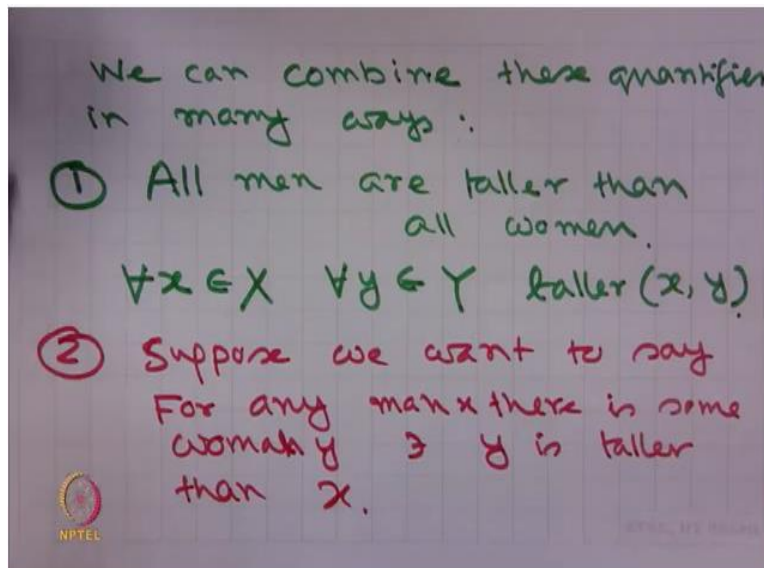 We can combine these quantifier
in many ways :
① All men are taller than
all women.
∀x ∈ X ∀y ∈ Y taller (x, y).
② Suppose we want to say
For any man x there is some
woman y ∋ y is taller
than x.
NPTEL